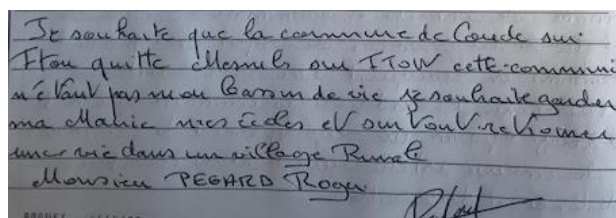 Je souhaite que la commune de Condé sur
Iton quitte Mesnils sur ITON cette commune
n'étant pas mon bassin de vie je souhaite garder
ma Mairie mes écoles et surtout retrouver
une vie dans un village Rural
Monsieur PEGARD Roger